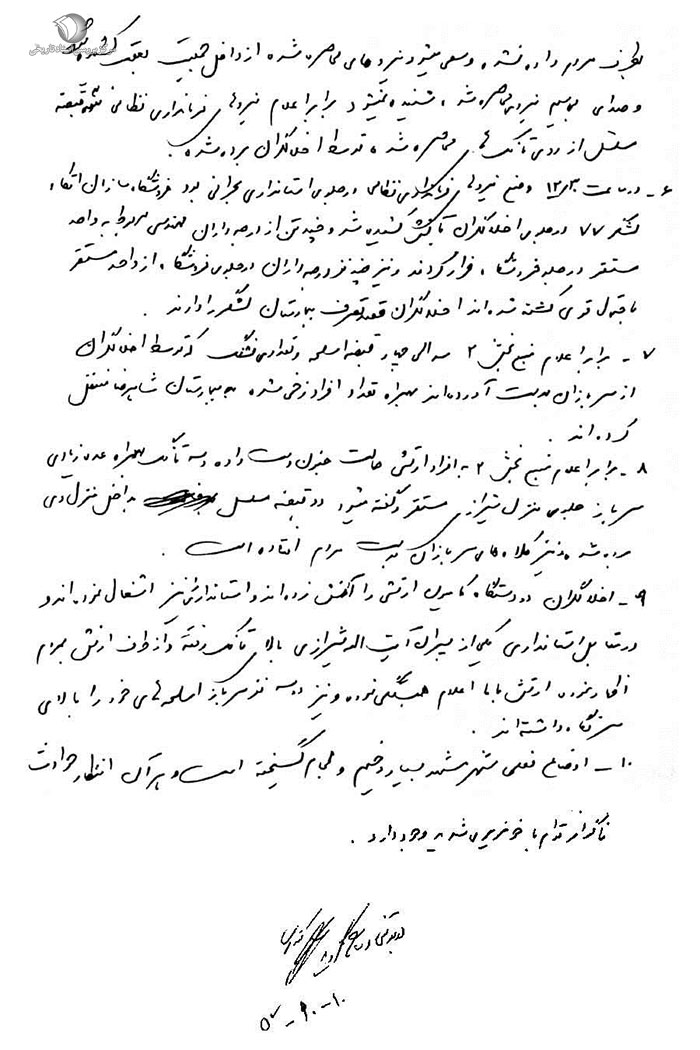 مرکز بررسی اسناد تاریخی
بطرف مردم داده نشده و سعی میشود نیروهای محاصره شده از داخل جمعیت بعقب کشیده شوند
و صدای بیسیم نیروی محاصره شده شنیده نمیشود برابر اعلام نیروهای فرمانداری نظامی قبضه
مسلسل از روی تانک های محاصره شده توسط اخلالگران برده شده.
۶- در ساعت ۱۲۳۰ وضع نیروهای فرمانداری نظامی در جلوی استانداری بحرانی بود فروشگاه سازمان اتکاء
لشکر ۷۷ در جلوی اخلالگران بآتش کشیده شد و چند تن از درجه داران مهندسی مربوط به واحد
مستقر در جلو فروشگاه فرار کردند و نیز چند نفر درجه داران در جلوی فروشگاه از واحد مستقر
باحتمال قوی کشته شده اند اخلالگران قصد تصرف بیمارستان لشگر را دارند.
۷- برابر اعلام منبع بخش ۲ سه الی چهار قبضه اسلحه و تعدادی فشنگ که توسط اخلالگران
از سربازان بدست آورده اند بهمراه تعداد افراد زخمی شده به بیمارستان شاهرضا منتقل
کرده اند.
۸- برابر اعلام منبع بخش ۲ به افراد ارتشی حالت جنون دست داده و سه تانک بهمراه عده زیادی
سرباز جلوی منزل شیرازی مستقر و گفته میشود دو قبضه مسلسل به داخل منزل وی
برده شده و نیز کلاه های سربازان بدست مردم افتاده است.
۹- اخلالگران دو دستگاه کامیون ارتشی را آتش زده اند و استانداری نیز اشغال نموده اند و
در مقابل استانداری یکی از پسران آیت اله شیرازی بالای تانک رفته و از طرف ارتش بمردم
اظهار نموده ارتش با ما اعلام همبستگی نموده و نیز دو سه نفر سرباز اسلحه های خود را بالای
سر نگاه داشته اند.
۱۰- اوضاع فعلی شهر مشهد بسیار وخیم و لجام گسیخته است و هر آن انتظار حوادث
ناگوار توام با خونریزی شدید وجود دارد.
۵۷-۱۰-۱۰